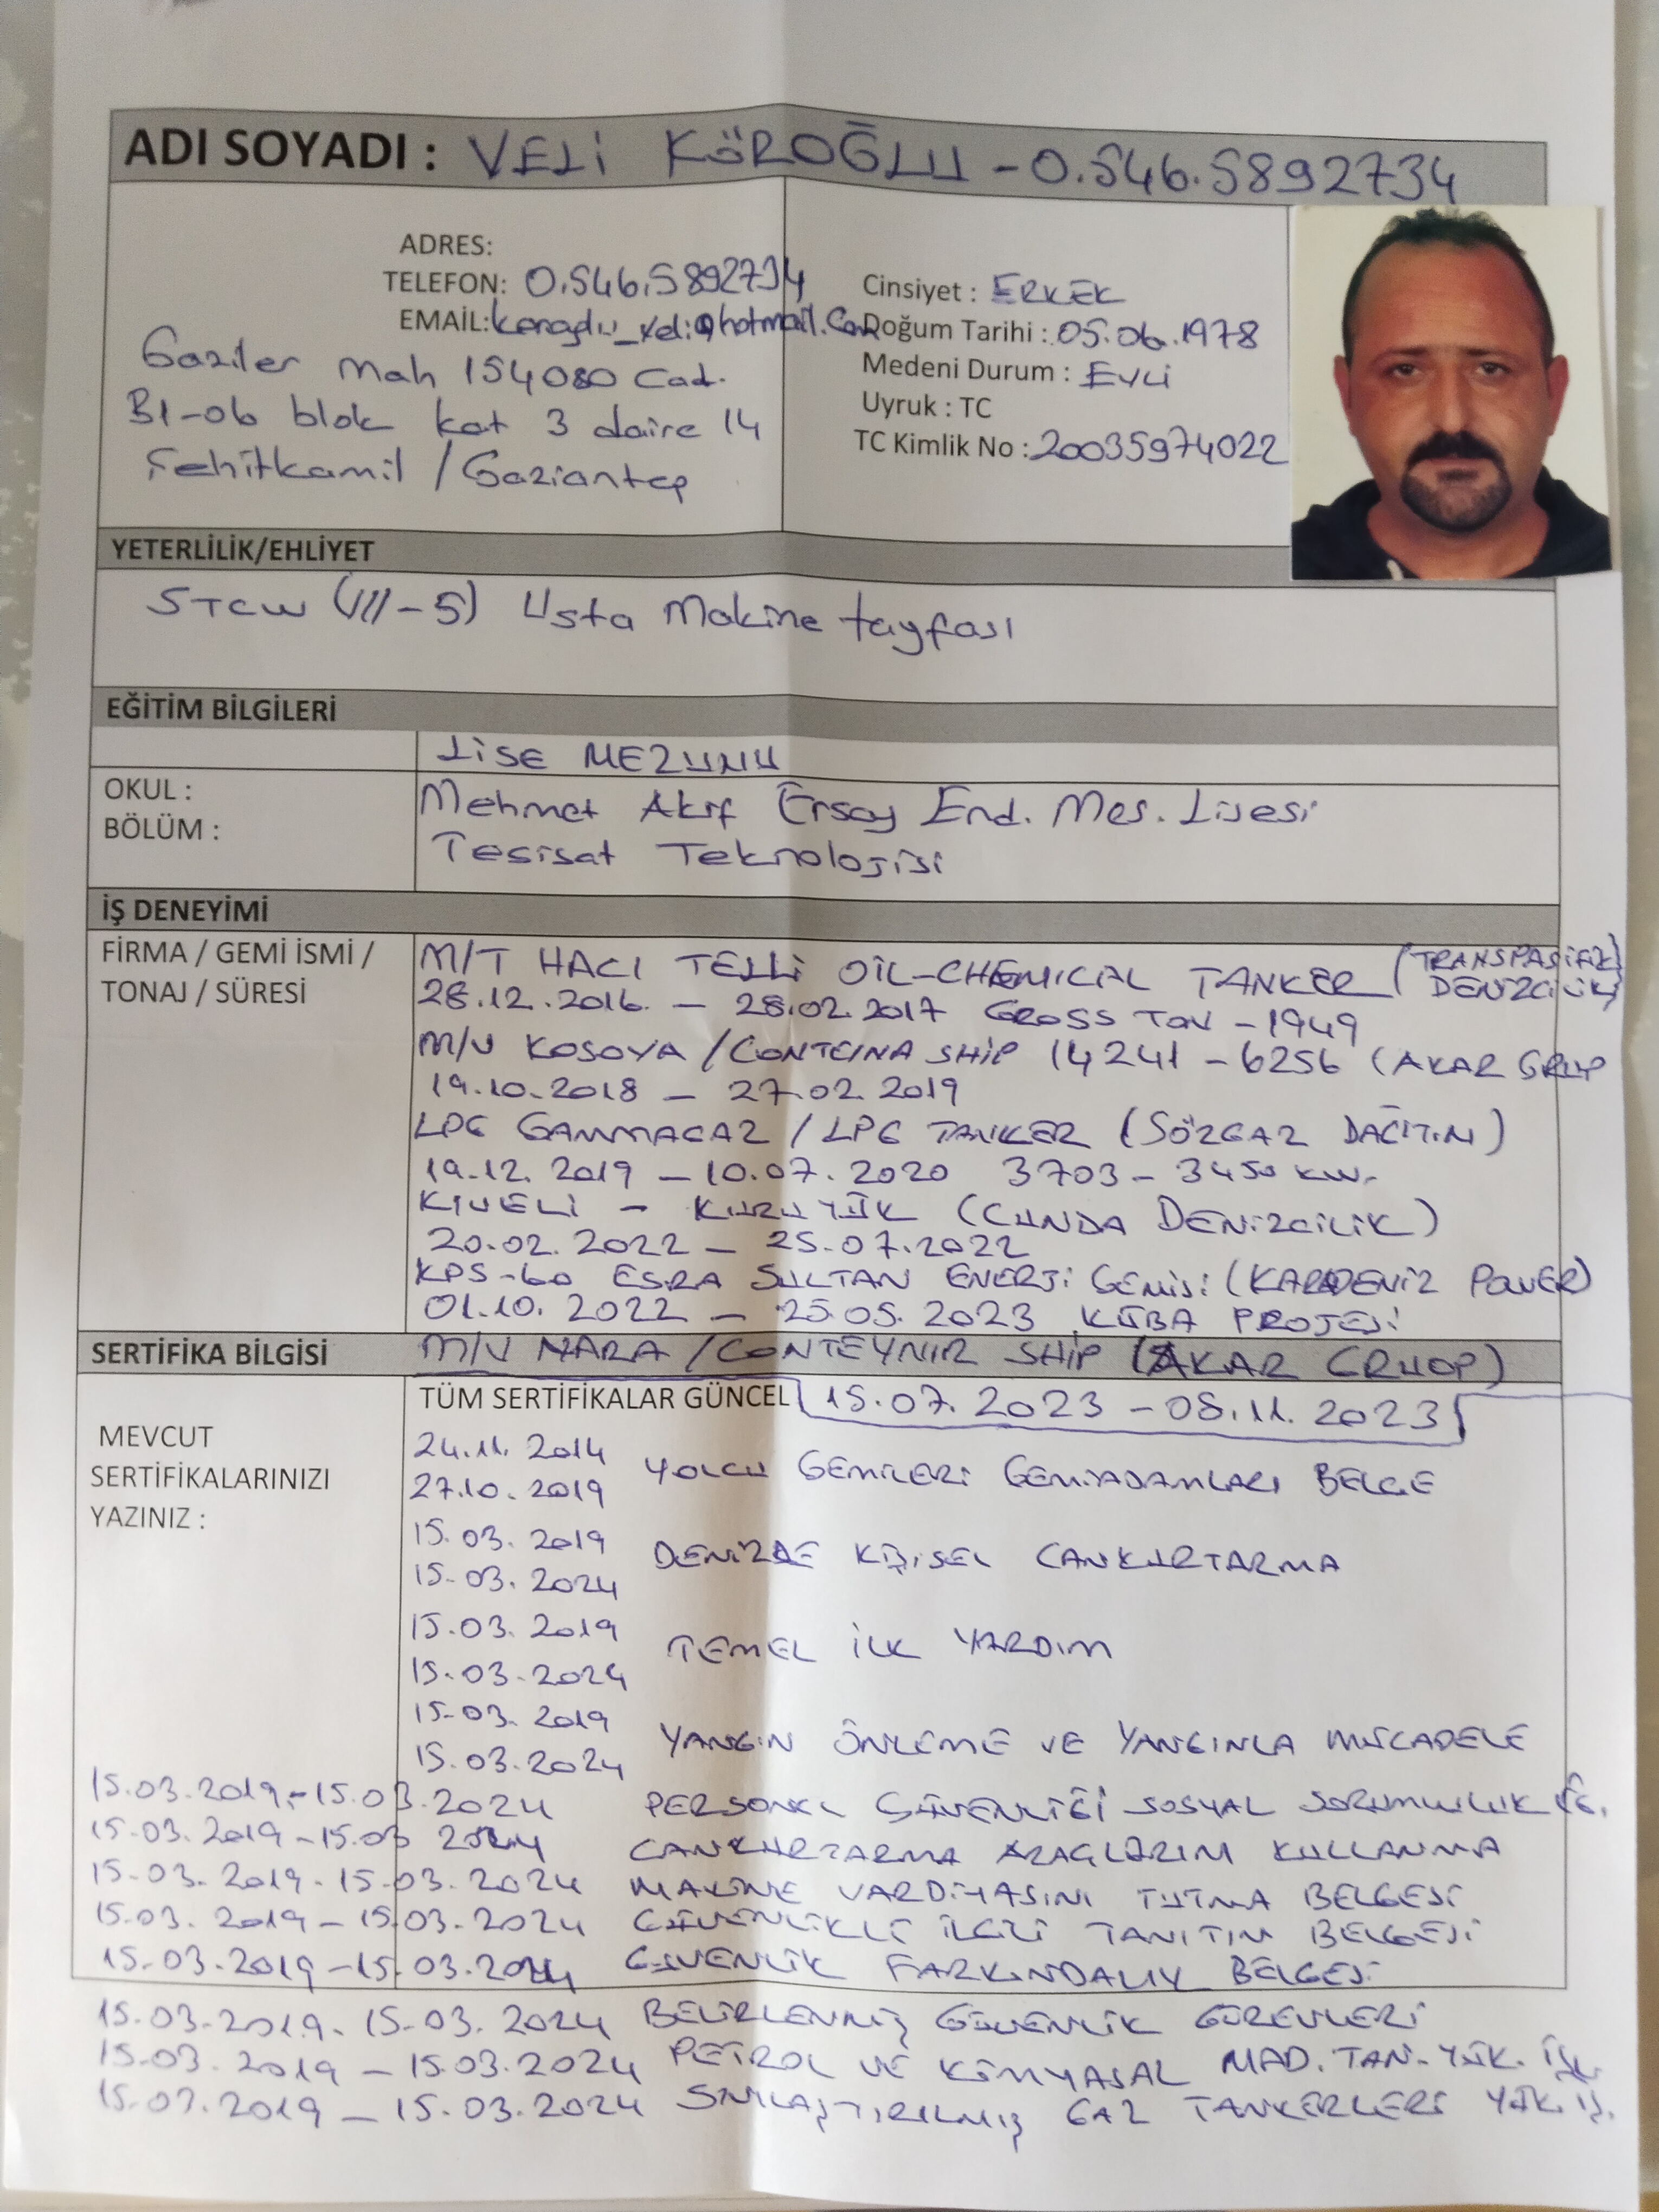 ADI SOYADI : VELİ KÖROĞLU - 0.546.5892734
ADRES:
TELEFON: 0.546.5892734
EMAİL: @hotmail.com
Gaziler mah 154080 Cad.
B1-06 blok kat 3 daire 14
Şehitkamil / Gaziantep
Cinsiyet : ERKEK
Doğum Tarihi : 05.06.1978
Medeni Durum : EVLİ
Uyruk : TC
TC Kimlik No : 20035974022
YETERLİLİK/EHLİYET
STCW (III-5) Usta Makine tayfası
EĞİTİM BİLGİLERİ
LİSE MEZUNU
OKUL : Mehmet Akif Ersoy End. Mes. Lisesi
BÖLÜM : Tesisat Teknolojisi
İŞ DENEYİMİ
FİRMA / GEMİ İSMİ /
TONAJ / SÜRESİ
M/T HACI TELLİ OİL-CHEMICAL TANKER (TRANSPASİFİK DENİZCİLİK)
28.12.2016. - 28.02.2017 GROSS TON - 1949
M/V KOSOYA / CONTEINA SHİP 14241 - 6256 (AKAR GRUP
19.10.2018 - 27.02.2019
LPG GAMMAGAZ / LPG TANKER (SÖZGAZ DAĞITIM)
19.12.2019 - 10.07.2020 3703 - 3450 KW.
KIVELİ - KURUYÜK (CUNDA DENİZCİLİK)
20.02.2022 - 25.07.2022
KPS-60 ESRA SULTAN ENERJİ GEMİSİ (KARADENİZ POWER)
01.10.2022 - 25.05.2023 KÜBA PROJESİ
SERTİFİKA BİLGİSİ M/V MARA / CONTEYNIR SHİP (AKAR GRUOP)
TÜM SERTİFİKALAR GÜNCEL 15.07.2023 - 08.11.2023
MEVCUT
SERTİFİKALARINIZI
YAZINIZ :
24.11.2014
27.10.2019
YOLCU GEMİLERİ GEMİADAMLARI BELGE
15.03.2019
15.03.2024
DENİZDE KİŞİSEL CANKURTARMA
15.03.2019
15.03.2024
TEMEL İLK YARDIM
15.03.2019
15.03.2024
YANGIN ÖNLEME VE YANGINLA MÜCADELE
15.03.2019 - 15.03.2024 PERSONEL GÜVENLİĞİ SOSYAL SORUMLULUK
15.03.2019 - 15.03 2024 CANKURTARMA ARAÇLARINI KULLANMA
15.03.2019 - 15.03.2024 MAKİNE VARDİYASINI TUTMA BELGESİ
15.03.2019 - 15.03.2024 GÜVENLİKLE İLGİLİ TANITIM BELGESİ
15.03.2019 - 15.03.2024 GÜVENLİK FARKINDALIK BELGESİ
15.03.2019 - 15.03.2024 BELİRLENMİŞ GÜVENLİK GÖREVLERİ
15.03.2019 - 15.03.2024 PETROL VE KİMYASAL MAD. TAN. YÜK. İŞL.
15.03.2019 - 15.03.2024 SIVILAŞTIRILMIŞ GAZ TANKERLERİ YÜK. İŞ.